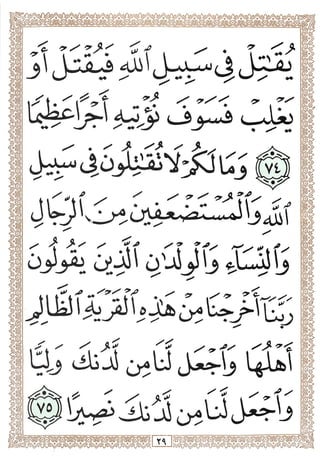 يُقَٰتِلْ فِي سَبِيلِ ٱللَّهِ فَيُقْتَلْ أَوْ
يَغْلِبْ فَسَوْفَ نُؤْتِيهِ أَجْرًا عَظِيمًا
٧٤ وَمَا لَكُمْ لَا تُقَٰتِلُونَ فِي سَبِيلِ
ٱللَّهِ وَٱلْمُسْتَضْعَفِينَ مِنَ ٱلرِّجَالِ
وَٱلنِّسَآءِ وَٱلْوِلْدَٰنِ ٱلَّذِينَ يَقُولُونَ
رَبَّنَآ أَخْرِجْنَا مِنْ هَٰذِهِ ٱلْقَرْيَةِ ٱلظَّالِمِ
أَهْلُهَا وَٱجْعَل لَّنَا مِن لَّدُنكَ وَلِيًّا
وَٱجْعَل لَّنَا مِن لَّدُنكَ نَصِيرًا ٧٥
٢٩